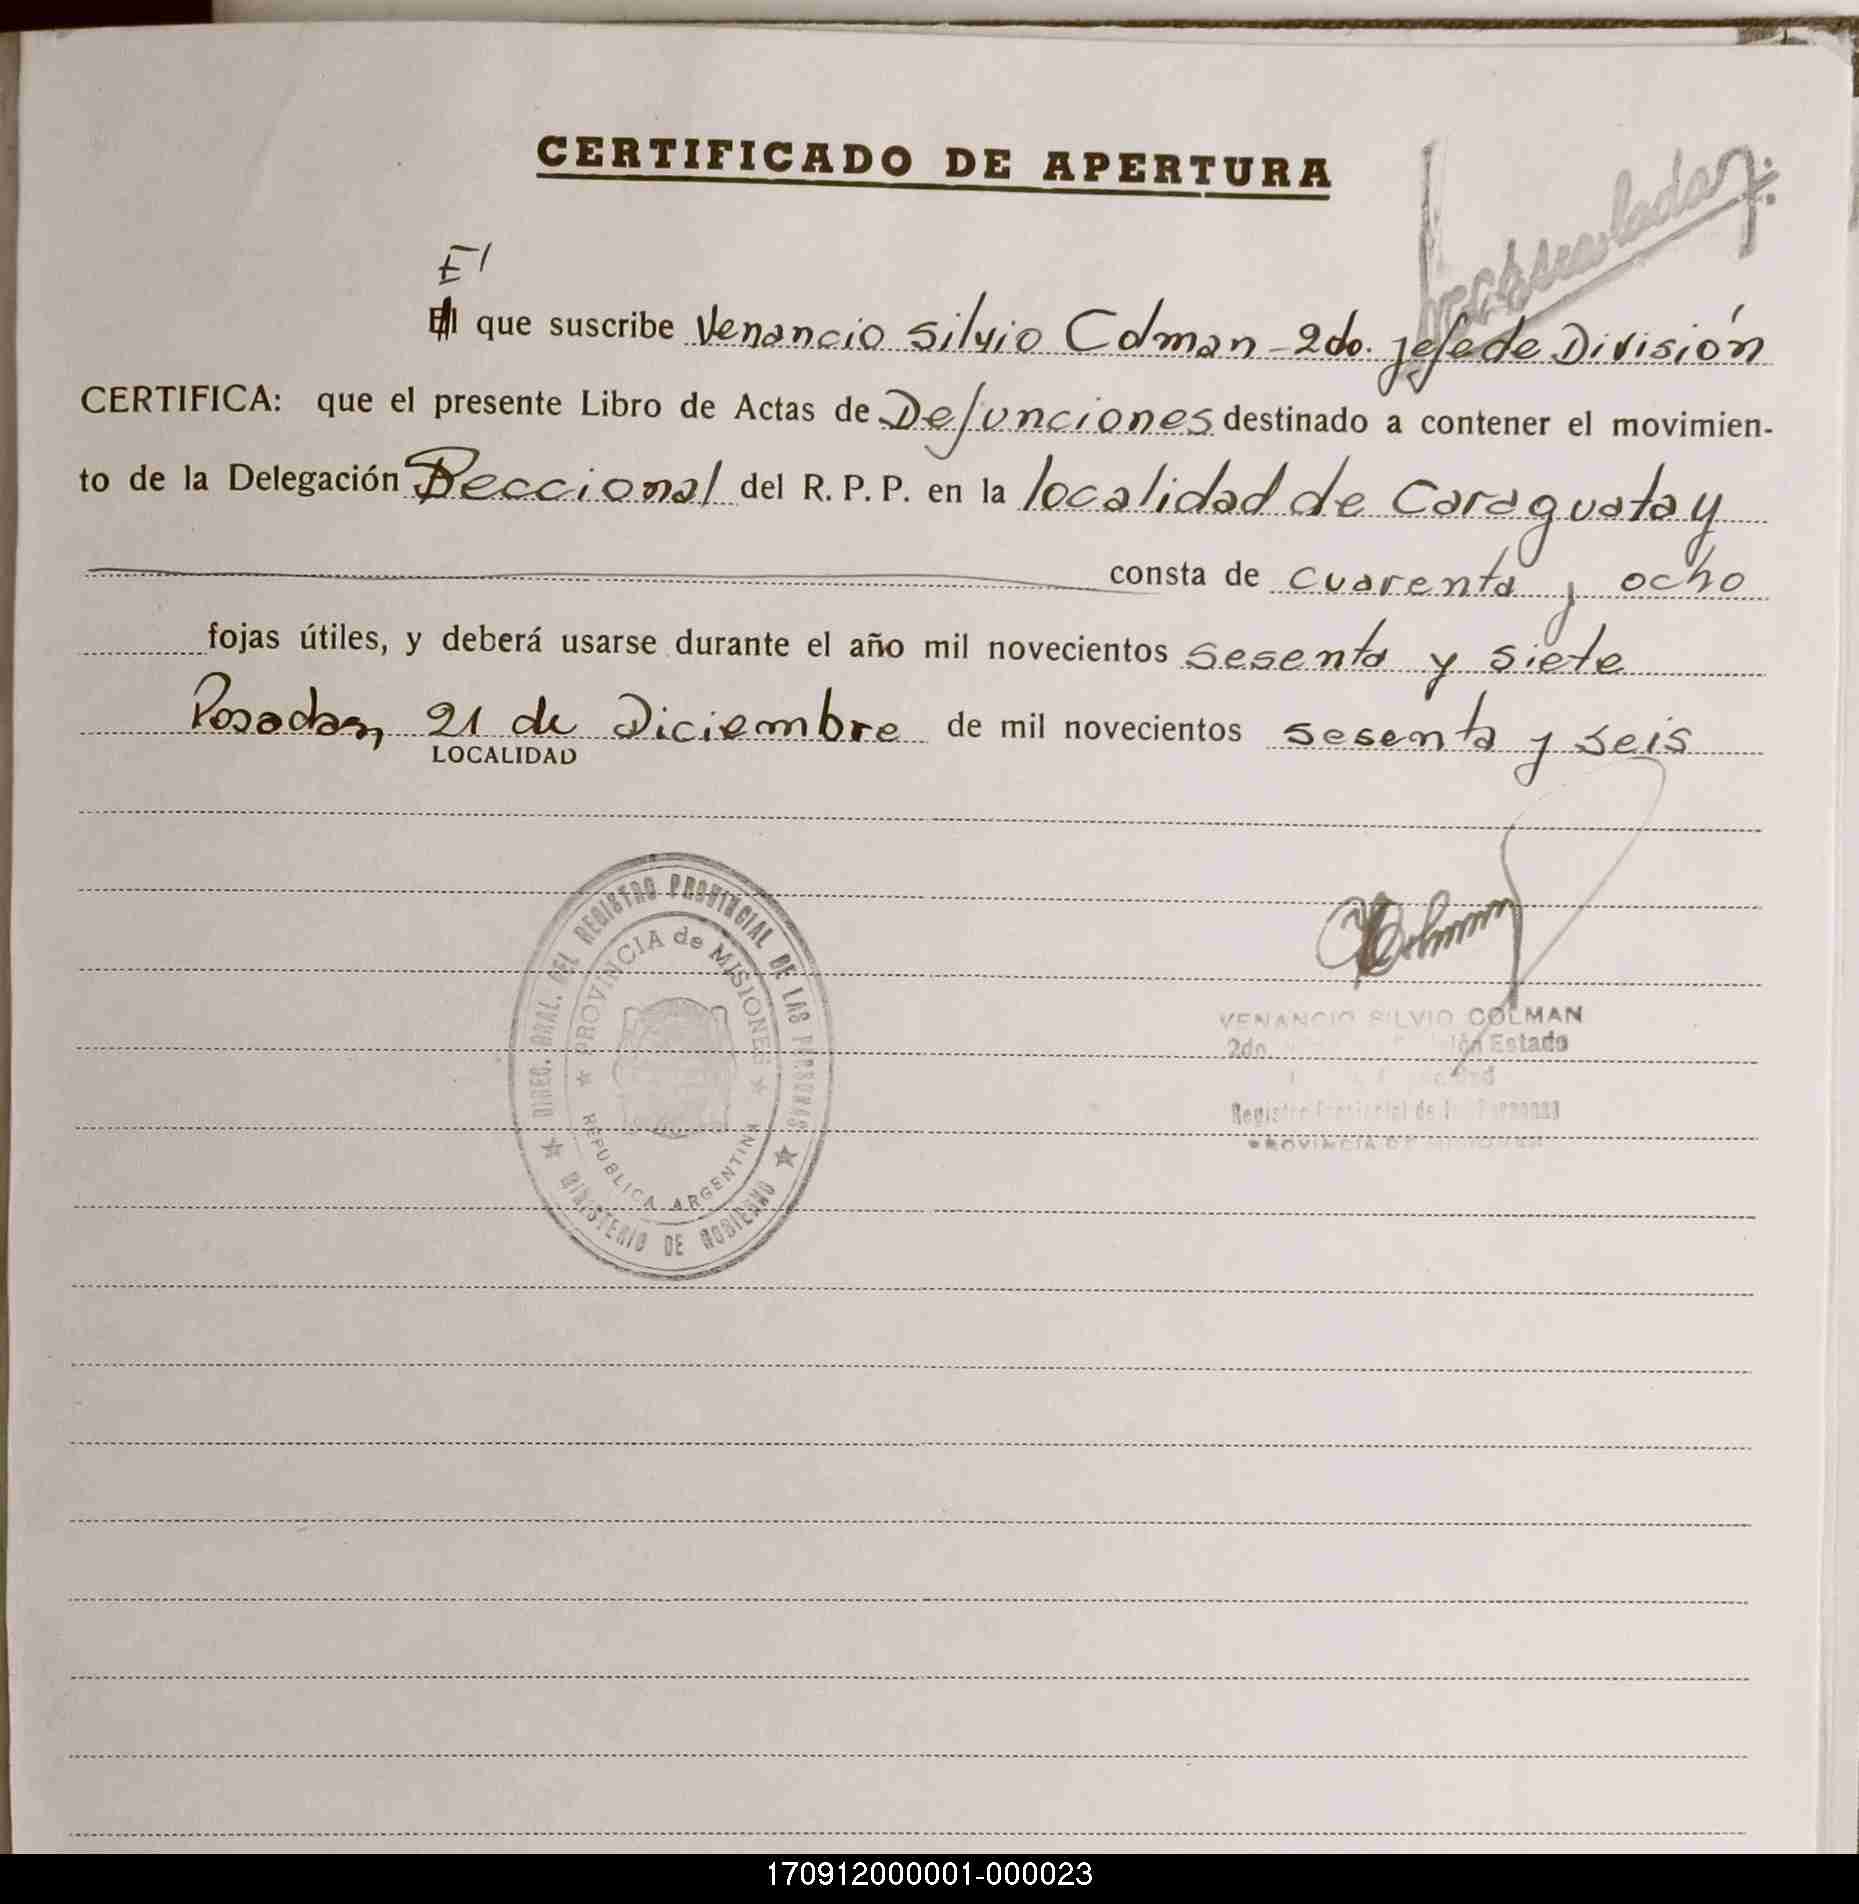 CERTIFICADO DE APERTURA
El
El que suscribe Venancio Silvio Colman - 2do. jefe de División
CERTIFICA: que el presente Libro de Actas de Defunciones destinado a contener el movimien-
to de la Delegación Seccional del R. P. P. en la localidad de Caraguatay
consta de cuarenta y ocho
fojas útiles, y deberá usarse durante el año mil novecientos sesenta y siete
Posadas, 21 de Diciembre de mil novecientos sesenta y seis
LOCALIDAD
DIREC. GRAL. DEL REGISTRO PROVINCIAL DE LAS PERSONAS
PROVINCIA de MISIONES
REPUBLICA ARGENTINA
MINISTERIO DE GOBIERNO
Colman
VENANCIO SILVIO COLMAN
2do. Estado
Registro Provincial de las Personas
PROVINCIA DE MISIONES
170912000001-000023